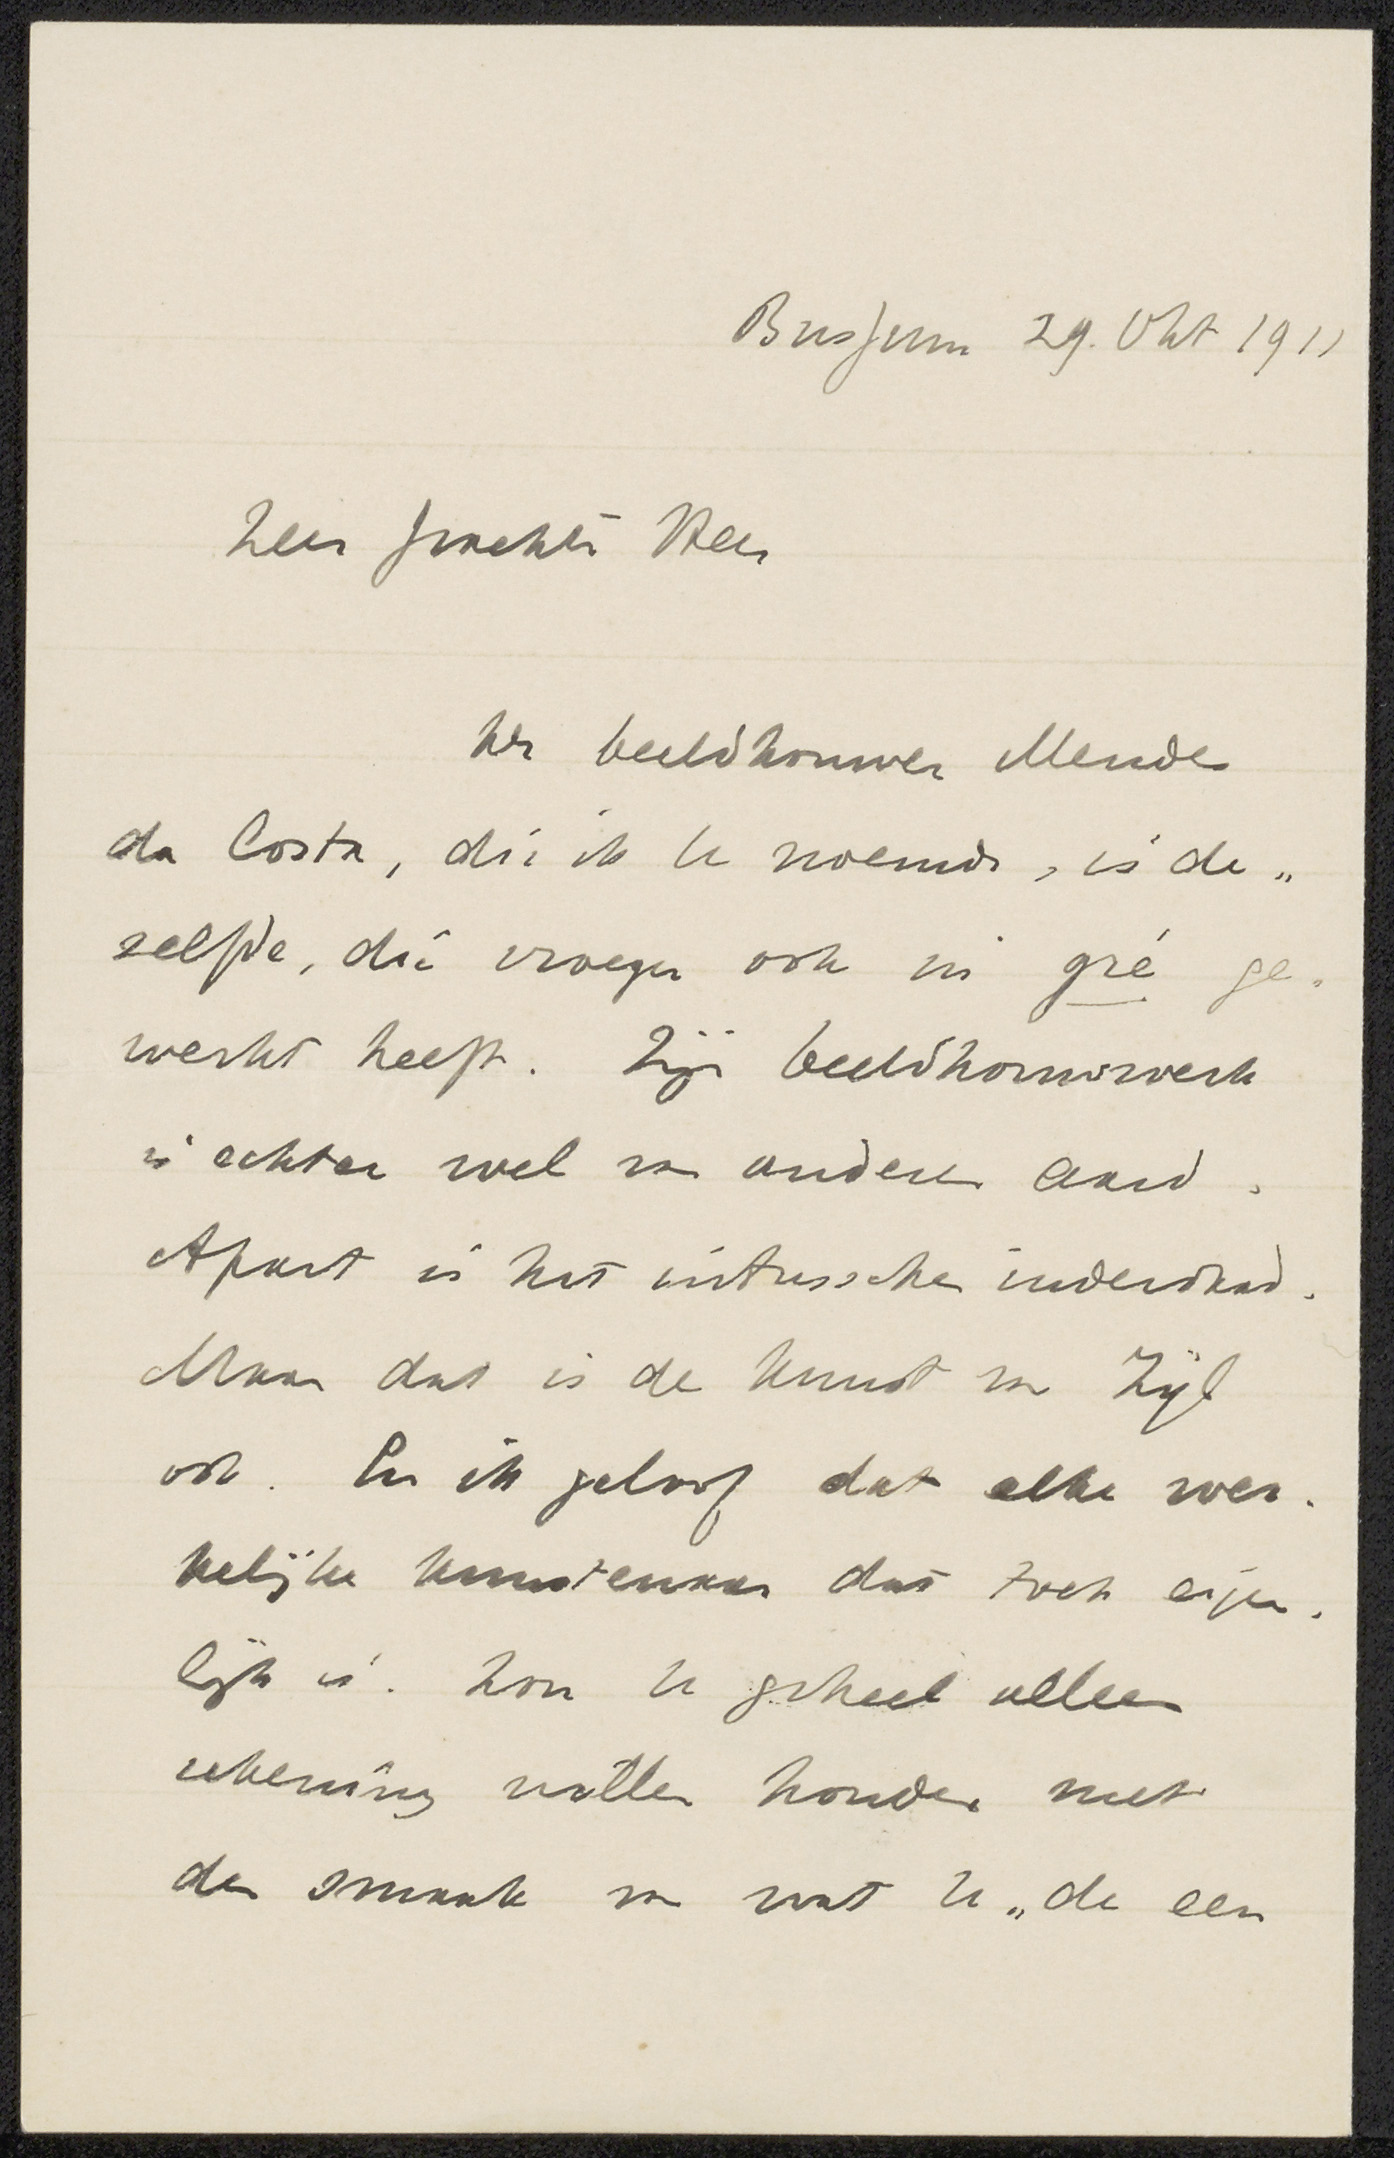 Bussum 29. Okt 1911
Zeer geachte Heer
De beeldhouwer Mendes
da Costa, die ik U noemde, is de„
zelfde, die vroeger ook in gré ge-
werkt heeft. Zijn beeldhouwwerk
is echter wel van anderen aard.
Apart is het intusschen inderdaad.
Maar dat is de kunst van Zijl
ook. En ik geloof dat elke wer-
kelijke kunstenaar dat toch eigen-
lijk is. Zou U geheel alleen
rekening willen houden met
den smaak van wat U „de een